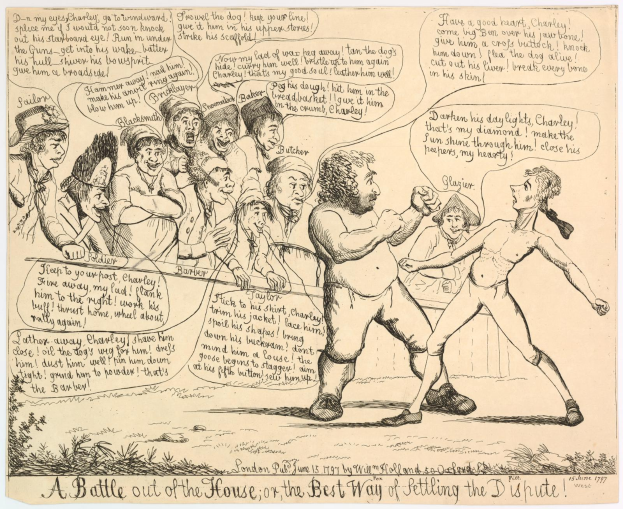 D-n my eyes, Charley, go to windward!
splice me if I would not soon knock
out his starboard eye! Run in under
the Guns _ get into his wake _ batter
his hull _ shver his bowsprit
give him a broadside!
Trowel the dog! keep your line!
give it him in his upper stories!
Strike his scaffold!
Hammer away! nail him
make his wrist ring again!
blow him up!
Now my lad of wax peg away! tan the dog's
hide! curry him well! bristle up to him again
Charley! that's my good soul! leather him well!
Peg his dough! hit him in the
breadbasket! give it him
in the crumb, Charley!
Have a good heart, Charley!
come big Ben over his jaw bone!
give him a cross buttock! knock
him down! flea the dog alive!
cut out his liver! break every bone
in his skin!
Darken his day lights, Charley!
that's my diamond! make the
Sun shine through him! close his
peepers, my hearty!
Sailor
Blacksmith
Bricklayer
Shoemaker
Baker
Butcher
Glazier
Soldier
Barber
Taylor
Keep to your post, Charley!
Fire away, my lad! flank
him to the right! work his
buff! thrust home, wheel about,
rally again!
Lather away, Charley! shave him
close! oil the dog's wig for him! dress
him! dust him well! pin him down
tight! grind him to powder! that's
the Barber!
Stick to his shirt, Charley!
trim his jacket! lace him!
spoil his shapes! bring
down his buckram! don't
mind him a Louse! the
goose begins to stagger! aim
at his fifth button! sew him up!
London Pubd. June 15 1797 by Willm. Holland 50 Oxford St.
A Battle out of the House; or, the Best Way of Settling the Dispute!
15 June 1797